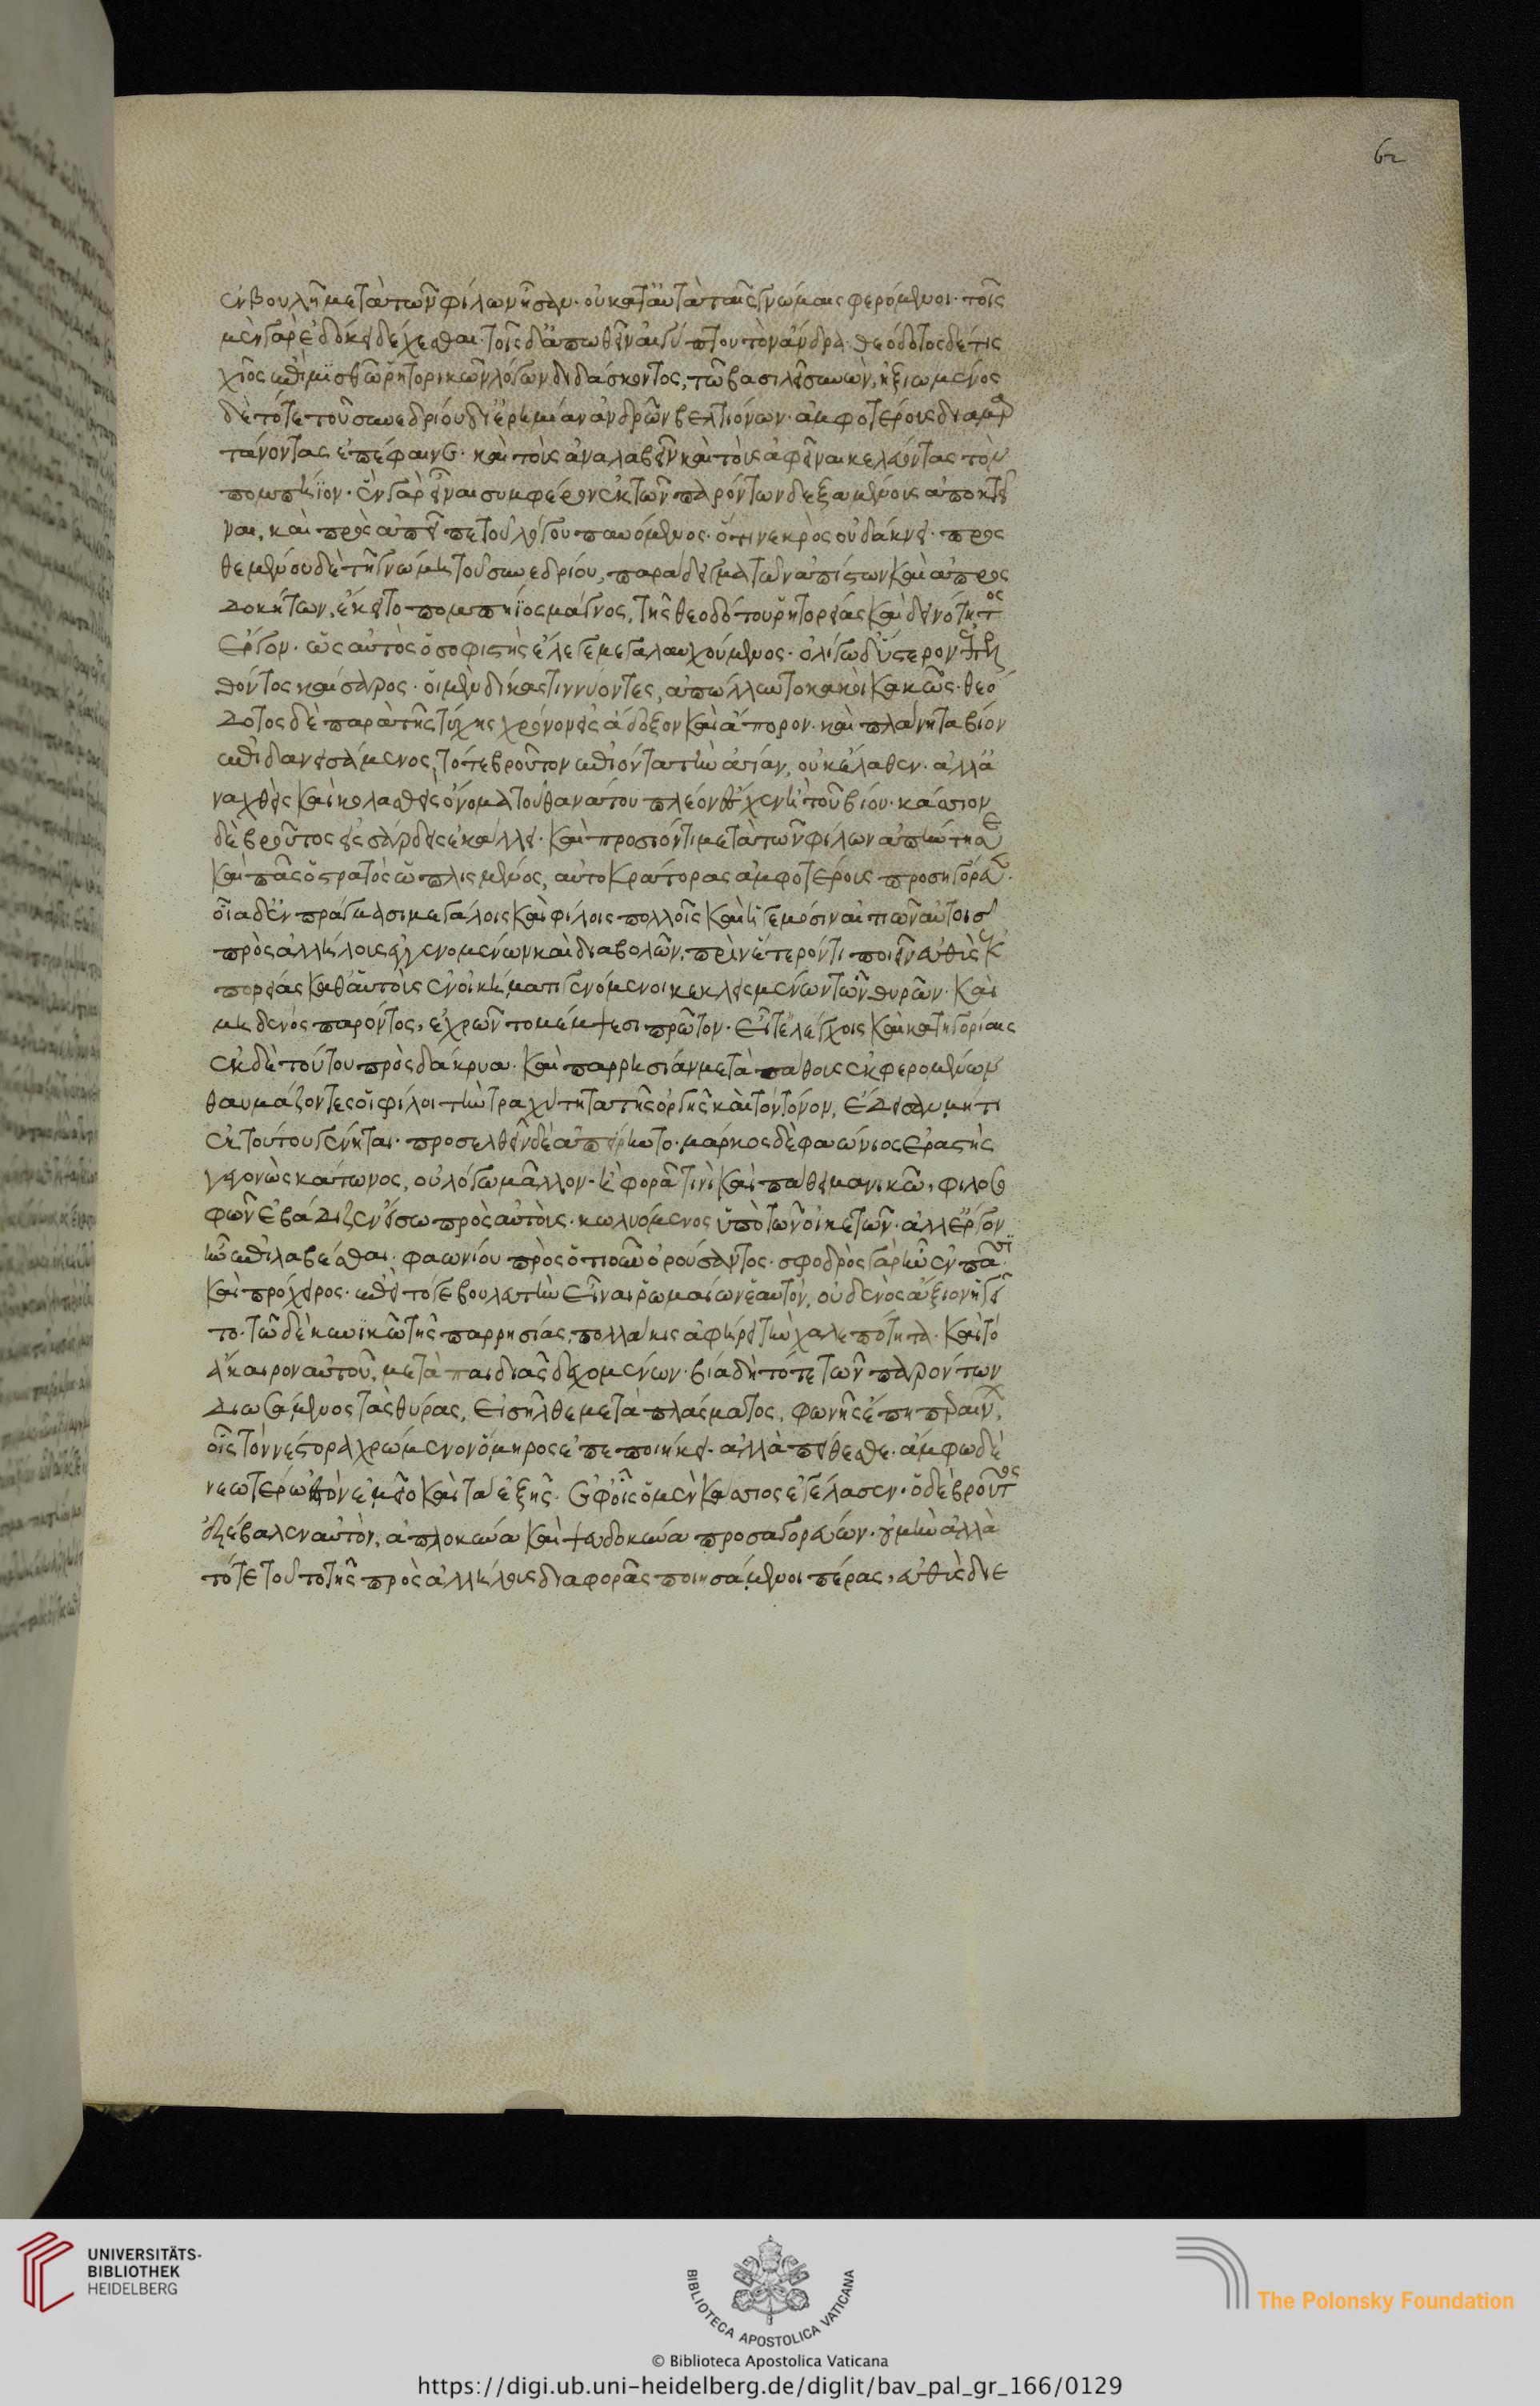 ἐν βουλῆ μετὰ τῶν φίλων ἦσαν· οὐ κατ' αὐτὰ ταῖς γνώμαις φερόμενοι· τοῖς
μὲν γὰρ ἐδόκει δέχεσθαι· τοῖς δ' ἀπωθεῖν αἰγύπτου τὸν ἄνδρα· θεόδοτος δέ τις
χῖος ἐπὶ μισθῶ ῥητορικῶν λόγων διδάσκοντος, τῶ βασιλεῖ συνὼν, ἠξιωμένος
δὲ τότε τοῦ συνεδρίου δι' ἐρημίαν ἀνδρῶν βελτιόνων· ἀμφοτέρους διαμαρ
τάνοντας ἐπέφαινε· καὶ τοὺς ἀναλαβεῖν καὶ τοὺς ἀφεῖναι κελεύοντας τὸν
πομπήϊον· ἓν γὰρ εἶναι συμφέρον ἐκ τῶν παρόντων δεξαμένους ἀποκτεῖ
ναι, καὶ προσαπεῖπε τοῦ λόγου παυόμενος· ὅτι νεκρὸς οὐ δάκνει· προσ
θεμένου δὲ τῆ γνώμη τοῦ συνεδρίου, παράδειγμα τῶν ἀπίστων καὶ ἀπροσ
δοκήτων, ἔκειτο πομπήϊος μάγνος, τῆς θεοδότου ῥητορείας καὶ δεινότητος
ἔργον· ὡς αὐτὸς ὁ σοφιστὴς ἔλεγε μεγαλαυχούμενος· ὀλίγω δ' ὕστερον ἐπελ
θόντος καίσαρος· οἱ μὲν δίκας τιννύοντες, ἀπώλλυντο κακοὶ κακῶς· θεό
δοτος δὲ παρὰ τῆς τύχης χρόνον εἰς ἄδοξον καὶ ἄπορον· καὶ πλάνητα βίον
ἐπιδανεισάμενος, τότε βροῦτον ἐπιόντα τὴν ἀσίαν, οὐκ ἔλαθεν· ἀλλ' ἀ
ναχθεὶς καὶ κολασθεὶς ὄνομα τοῦ θανάτου πλέον ἔσχεν ἢ τοῦ βίου· κάσσιον
δὲ βροῦτος εἰς σάρδεις ἐκάλει· καὶ προσιόντι μετὰ τῶν φίλων ἀπήντησε
καὶ πᾶς ὁ στρατὸς ὡπλισμένος, αὐτοκράτορας ἀμφοτέρους προσηγόρευσεν·
οἷα δ' ἐν πράγμασι μεγάλοις καὶ φίλοις πολλοῖς καὶ ἡγεμόσιν αἰτιῶν αὐτοῖς
πρὸς ἀλλήλους γενομένων καὶ διαβολῶν, πρὶν ἕτερόν τι ποιεῖν εὐθὺς ἐκ
πορείας καθ' αὑτοὺς ἐν οἰκήματι γενόμενοι κεκλεισμένων τῶν θυρῶν· καὶ
μηδενὸς παρόντος, ἐχρῶντο μέμψεσι πρῶτον· εἶτ' ἐλέγχοις καὶ κατηγορίαις
ἐκ δὲ τούτου πρὸς δάκρυα· καὶ παρρησίαν μετὰ πάθους ἐκφερομένων
θαυμάζοντες οἱ φίλοι τὴν τραχύτητα τῆς ὀργῆς καὶ τὸν τόνον, ἔδεισαν μή τι
ἐκ τούτου γένηται· προσελθεῖν δὲ ἀπείρητο· μάρκος δὲ φαώνιος ἐραστὴς
γεγονὼς κάτωνος, οὐ λόγω μᾶλλον· ἢ φορᾶ τινὶ καὶ πάθει μανικῶ, φιλοσο
φῶν ἐβάδιζεν εἴσω πρὸς αὐτοὺς· κωλυόμενος ὑπὸ τῶν οἰκετῶν· ἀλλ' ἔργον
ἦν ἐπιλαβέσθαι· φαωνίου πρὸς ὁτιοῦν ὀρούσαντος· σφοδρὸς γὰρ ἦν ἐν πᾶσι
καὶ πρόχειρος· ἐπεὶ τό γε βουλευτὴν εἶναι ῥωμαίων ἑαυτόν, οὐδενὸς ἄξιον ἡγεῖ
το· τῶ δὲ κυνικῶ τῆς παρρησίας, πολλάκις ἀφήρει τὴν χαλεπότητα· καὶ τὸ
ἄκαιρον αὐτοῦ, μετὰ παιδιᾶς δεχομένων· βία δὴ τότε τῶν παρόντων
διωσάμενος τὰς θύρας, εἰσῆλθε μετὰ πλάσματος, φωνῆς ἔπη περαίνων,
οἷς τὸν νέστορα χρώμενον ὅμηρος ἐπεποιήκει· ἀλλὰ πείθεσθε· ἄμφω δὲ
νεωτέρω ἐστὸν ἐμεῖο καὶ τὰ ἑξῆς· ἐφ' οἷς ὁ μὲν κάσσιος ἐγέλασεν· ὁ δὲ βροῦτος
ἐξέβαλεν αὐτὸν, ἁπλοκύνα καὶ ψευδοκύνα προσαγορεύων· οὐ μὴν ἀλλὰ
τότε τοῦτο τῆς πρὸς ἀλλήλους διαφορᾶς ποιησάμενοι πέρας, εὐθὺς διε
62
UNIVERSITÄTS-
BIBLIOTHEK
HEIDELBERG
BIBLIOTECA APOSTOLICA VATICANA
The Polonsky Foundation
© Biblioteca Apostolica Vaticana
https://digi.ub.uni-heidelberg.de/diglit/bav_pal_gr_166/0129